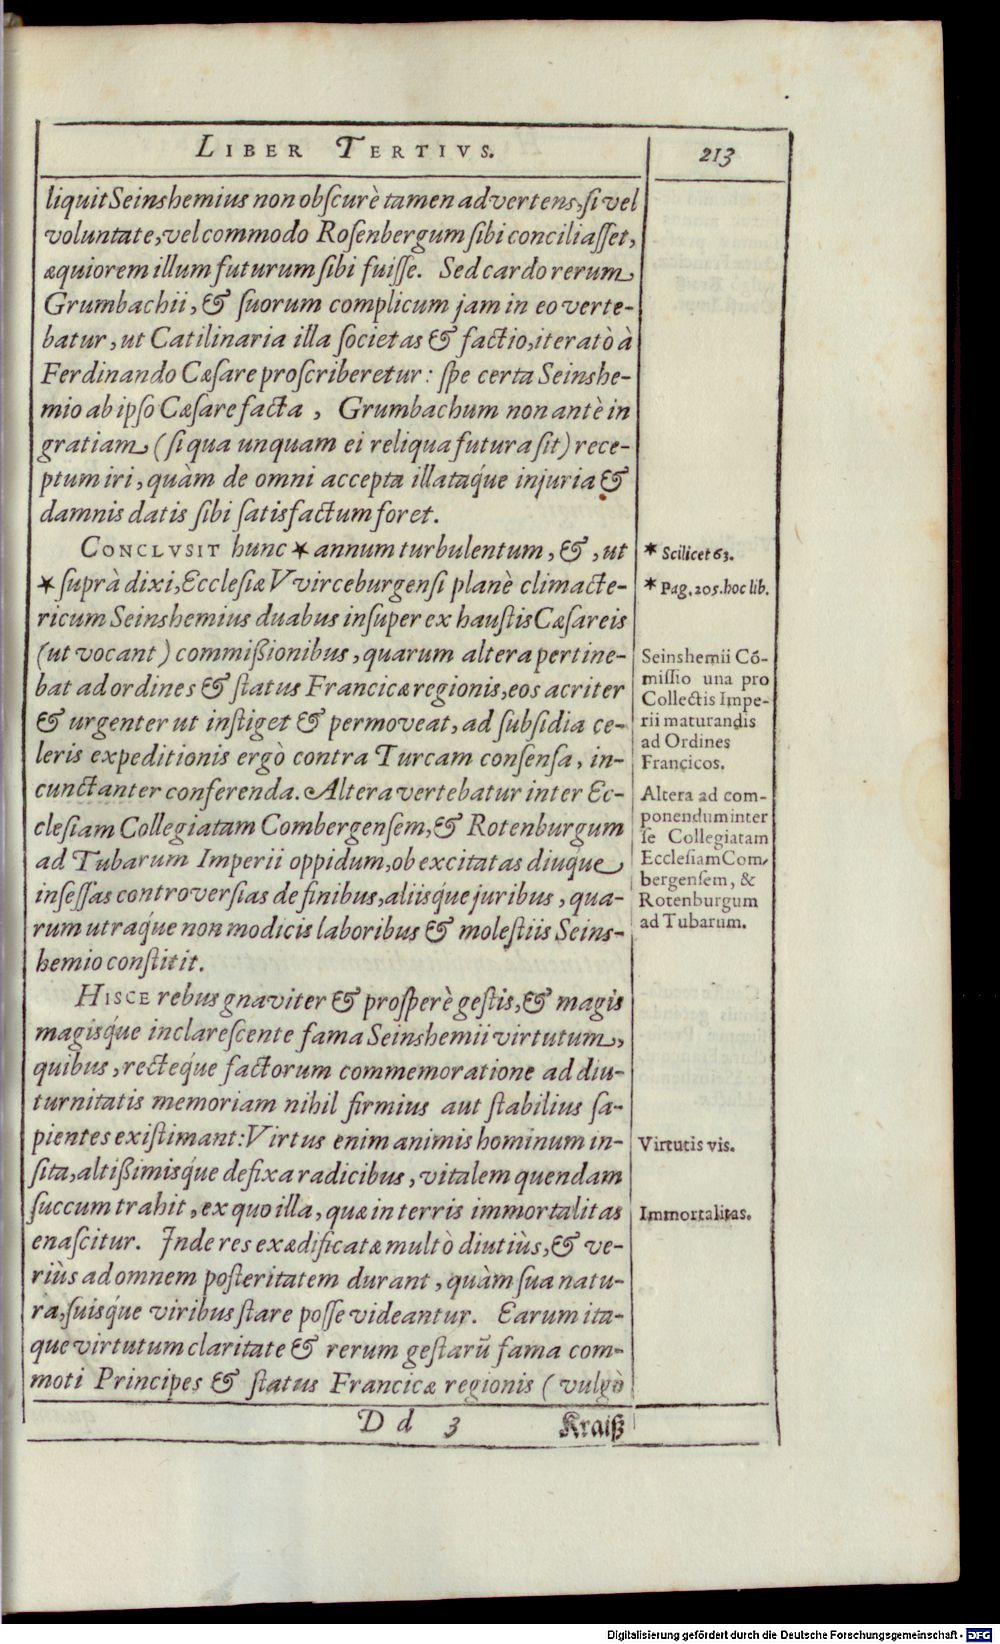 LIBER TERTIVS.
213
liquit Seinshemius non obscurè tamen advertens, si vel
voluntate, vel commodo Rosenbergum sibi conciliasset,
æquiorem illum futurum sibi fuisse. Sed cardo rerum
Grumbachii, & suorum complicum jam in eo verte-
batur, ut Catilinaria illa societas & factio, iteratò à
Ferdinando Cæsare proscriberetur: spe certa Seinshe-
mio ab ipso Cæsare facta, Grumbachum non antè in
gratiam (si qua unquam ei reliqua futura sit) rece-
ptum iri, quàm de omni accepta illataq́ue injuria &
damnis datis sibi satisfactum foret.
CONCLVSIT hunc * annum turbulentum, &, ut
* suprà dixi, Ecclesiæ VVirceburgensi planè climacte-
ricum Seinshemius duabus insuper exhaustis Cæsareis
(ut vocant) commißionibus, quarum altera pertine-
bat ad ordines & status Francicæ regionis, eos acriter
& urgenter ut instiget & permoveat, ad subsidia ce-
leris expeditionis ergò contra Turcam consensa, in-
cunctanter conferenda. Altera vertebatur inter Ec-
clesiam Collegiatam Combergensem, & Rotenburgum
ad Tubarum Imperii oppidum, ob excitatas diuq́ue
insessas controversias de finibus, aliisq́ue juribus, qua-
rum utraq́ue non modicis laboribus & molestiis Seins-
hemio constitit.
HISCE rebus gnaviter & prosperè gestis, & magis
magisq́ue inclarescente fama Seinshemii virtutum,
quibus, recteq́ue factorum commemoratione ad diu-
turnitatis memoriam nihil firmius aut stabilius sa-
pientes existimant: Virtus enim animis hominum in-
sita, altißimisq́ue defixa radicibus, vitalem quendam
succum trahit, ex quo illa, quæ in terris immortalitas
enascitur. Inde res exædificatæ multò diutiùs, & ve-
riùs ad omnem posteritatem durant, quàm sua natu-
ra, suisq́ue viribus stare posse videantur. Earum ita-
que virtutum claritate & rerum gestarū fama com-
moti Principes & status Francicæ regionis (vulgò
* Scilicet 63.
* Pag. 205. hoc lib.
Seinshemii Cō-
missio una pro
Collectis Impe-
rii maturandis
ad Ordines
Francicos.
Altera ad com-
ponendum inter
se Collegiatam
Ecclesiam Com-
bergensem, &
Rotenburgum
ad Tubarum.
Virtutis vis.
Immortalitas.
Dd 3
Kraiß
Digitalisierung gefördert durch die Deutsche Forschungsgemeinschaft - DFG